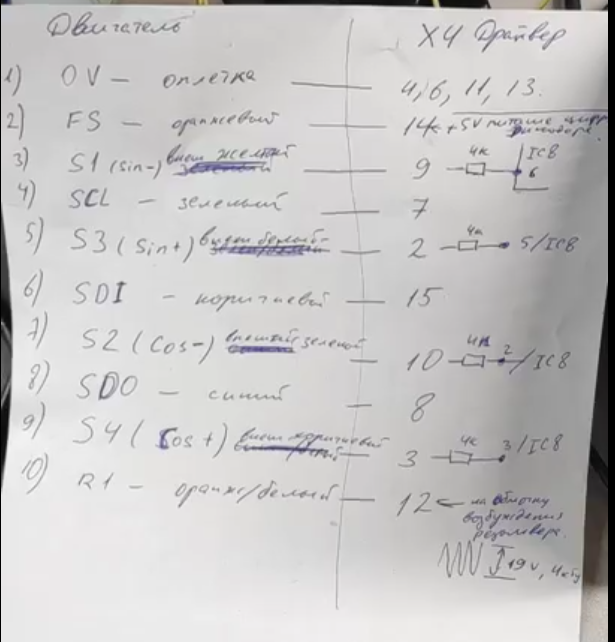 Двигатель X4 Драйвер
1) OV — оплетка — 4, 6, 11, 13.
2) FS — оранжевый — 14 + 5V питание
3) S1 (sin-) внеш желтый — 9 4к IC8 6
4) SCL — зеленый — 7
5) S3 (sin+) внеш белый — 2 4к 5/IC8
6) SDI — коричневый — 15
7) S2 (Cos-) внешний зеленой — 10 4к 2/IC8
8) SDO — синий — 8
9) S4 (Cos+) внеш коричневый — 3 4к 3/IC8
10) R1 — оранж/белый — 12 ← на обмотку
возбуждения
резольвера.
19V, 4кГц